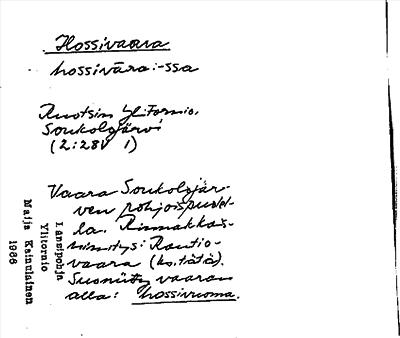 Hossivaara
hossivāra: -ssa
Ruotsin Yli Tornio,
Soukolojärvi
(2:28V 1)
Vaara Soukolojär-
ven pohjoispuolel-
la. Rinnakkas-
nimitys: Rautio-
vaara (ks. tätä).
Suoniitty vaaran
alla: hossivuoma.
Länsipohja
Ylitornio
Maija Keinulainen
1966